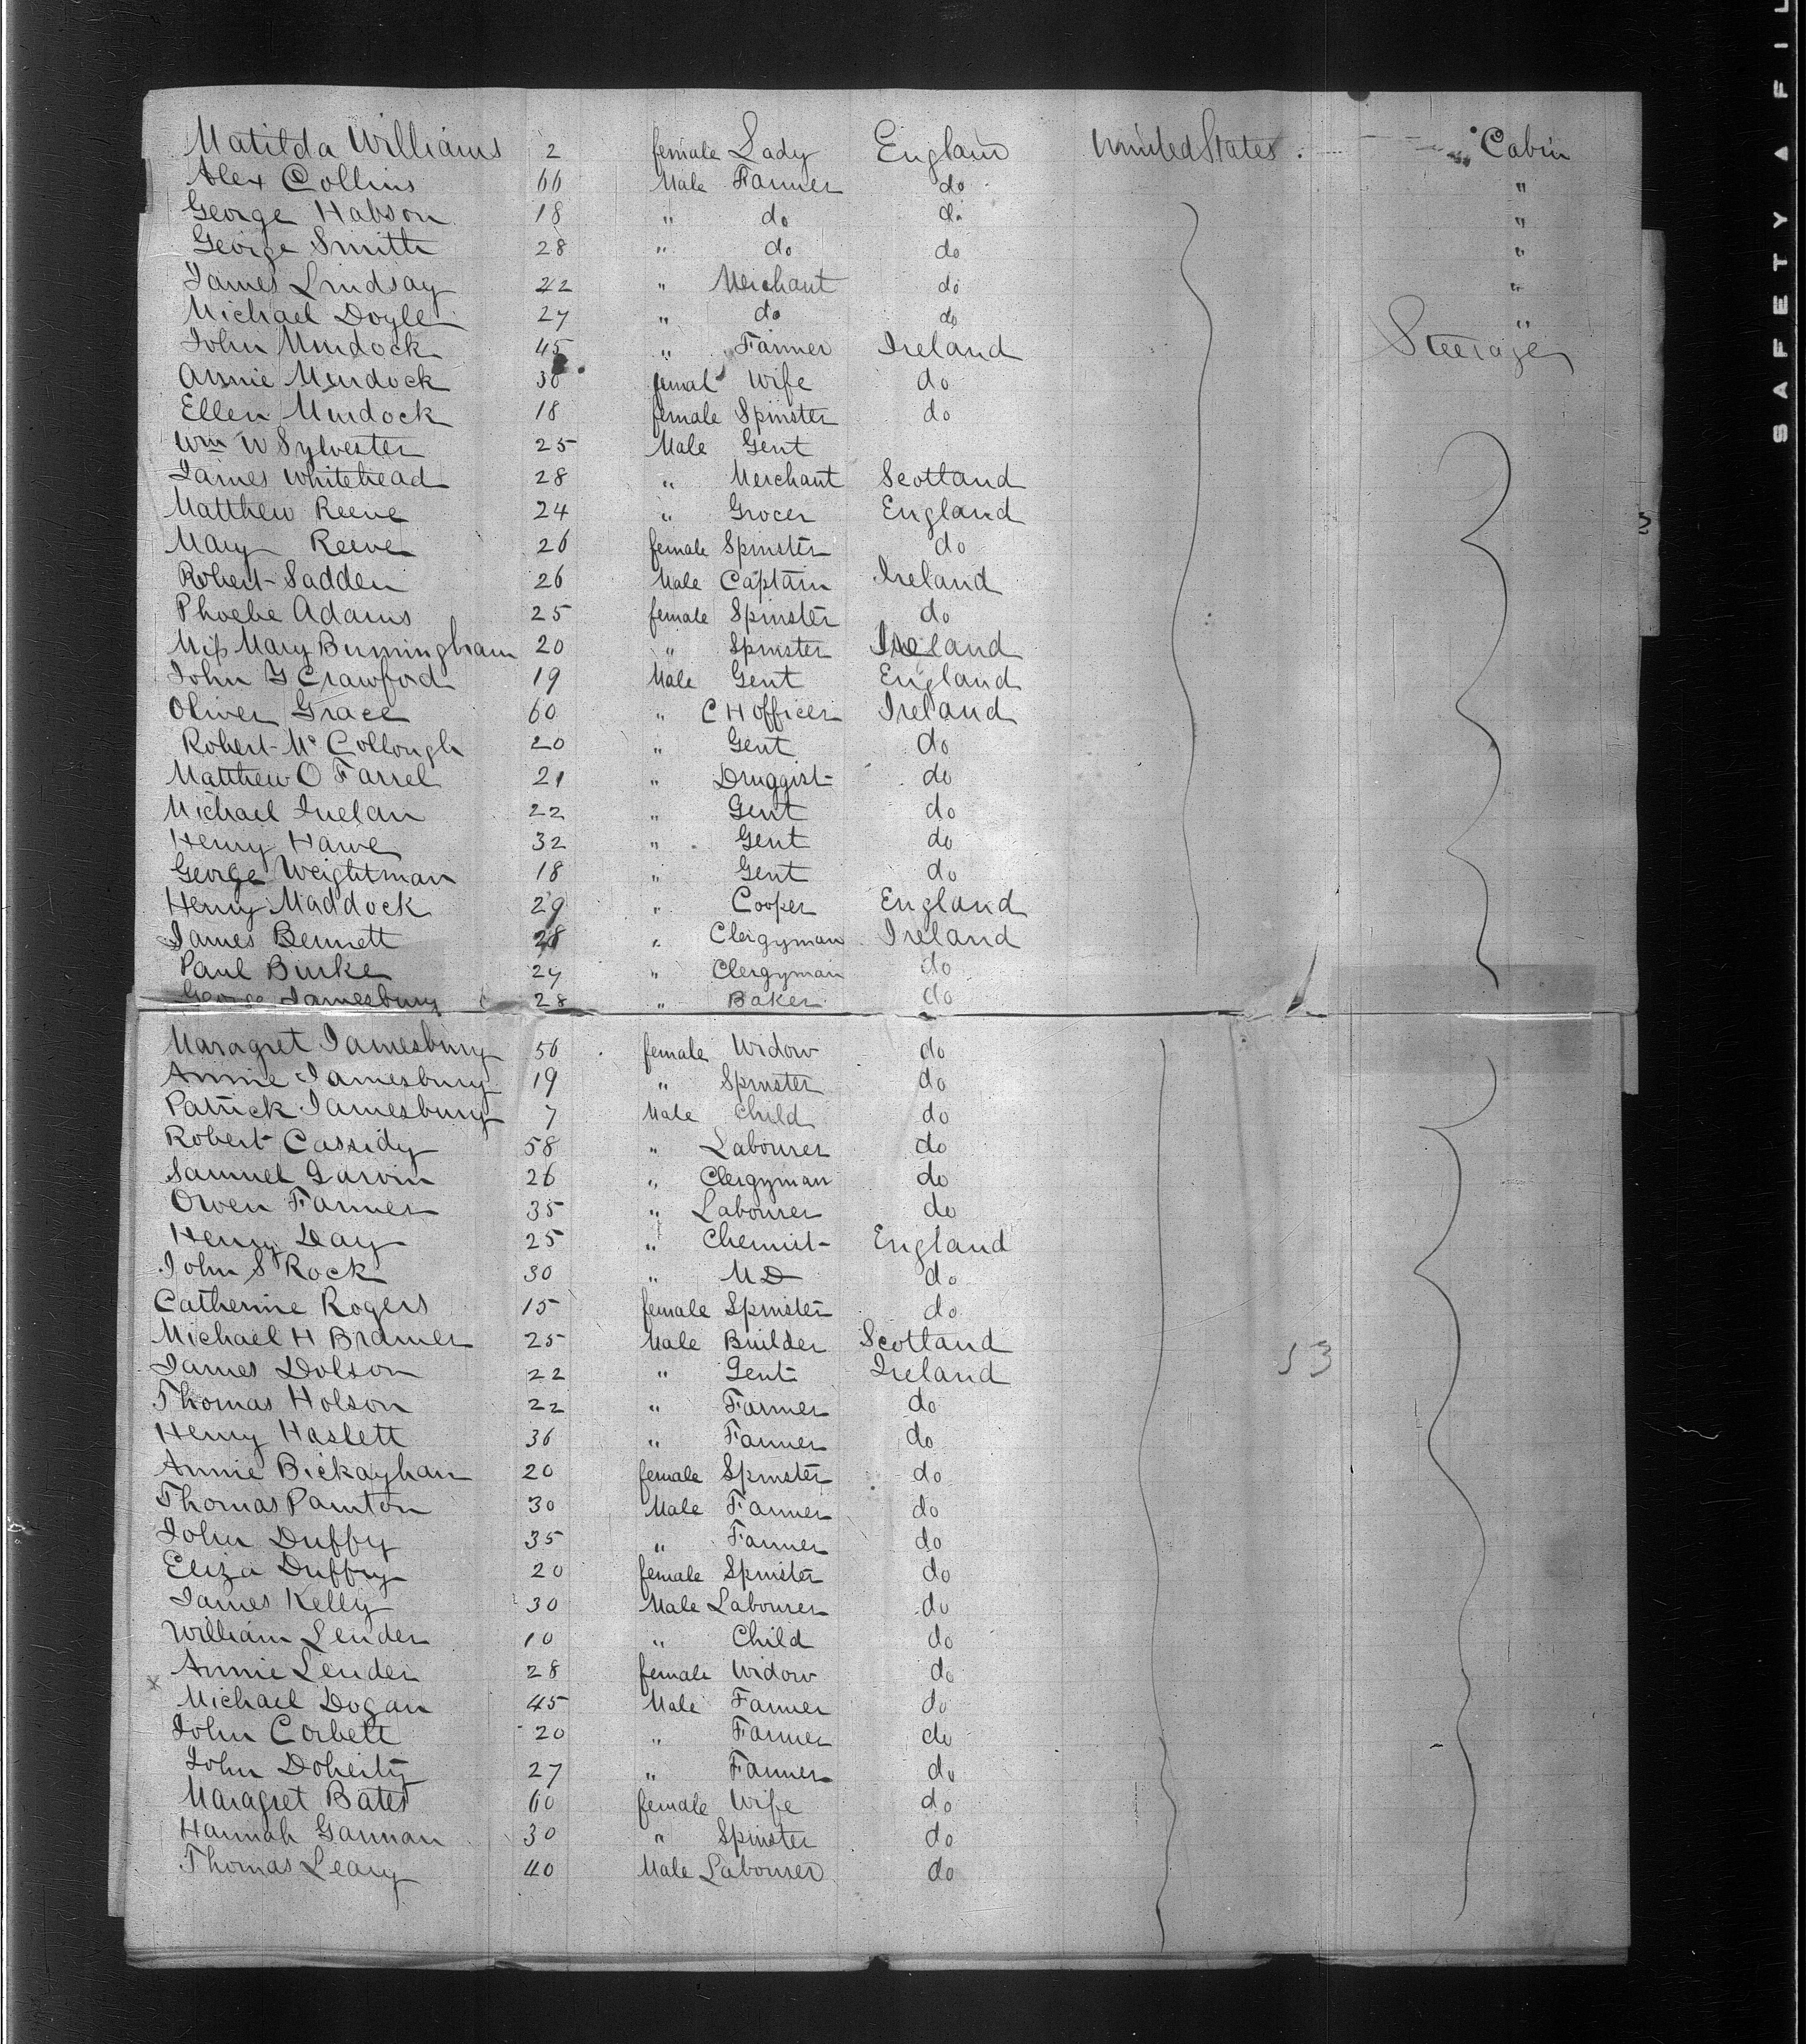 Matilda Williams 2 female Lady England United States. Cabin
Alex Collins 66 Male Farmer do "
George Habson 18 " do do "
George Smith 28 " do do "
James Lindsay 22 " Merchant do "
Michael Doyle 27 " do do "
John Murdock 45 " Farmer Ireland Steerage
Annie Murdock 30 femal Wife do
Ellen Murdock 18 female Spinster do
Wm W Sylvester 25 Male Gent
James Whitehead 28 " Merchant Scotland
Matthew Reeve 24 " Grocer England
Mary Reeve 26 female Spinster do
Robert Sadden 26 Male Captain Ireland
Phoebe Adams 25 female Spinster do
Miss Mary Burmingham 20 " Spinster Ireland
John G Crawford 19 Male Gent England
Oliver Grace 60 " C H officer Ireland
Robert Mc Collough 20 " Gent do
Matthew O Farrel 21 " Druggist do
Michael 22 " Gent do
Henry Hawe 32 " Gent do
George Weightman 18 " Gent do
Henry Maddock 29 " Cooper England
James Bennett 28 " Clergyman Ireland
Paul Burke 27 " Clergyman do
George Jamesbury 28 " Baker do
Maragret Jamesbury 56 female Widow do
Annie Jamesbury 19 " Spinster do
Patrick Jamesbury 7 Male Child do
Robert Cassidy 58 " Labourer do
Samuel Garvin 26 " Clergyman do
Owen Farmer 35 " Labourer do
Henry Day 25 " Chemist England
John S Rock 30 " M D do
Catherine Rogers 15 female Spinster do
Michael H Bramer 25 Male Builder Scotland
James Dolson 22 " Gent Ireland 53
Thomas Holson 22 " Farmer do
Henry Haslett 36 " Farmer do
Annie Bickayhan 20 female Spinster do
Thomas Panton 30 Male Farmer do
John Duffy 35 " Farmer do
Eliza Duffy 20 female Spinster do
James Kelly 30 Male Labourer do
William Lender 10 " Child do
Annie Lender 28 female Widow do
x Michael Dogan 45 Male Farmer do
John Corbett 20 " Farmer do
John Doherty 27 " Farmer do
Maragret Bates 60 female Wife do
Hannah Gannan 30 " Spinster do
Thomas Leary 40 Male Labourer do
SAFETY A FIL